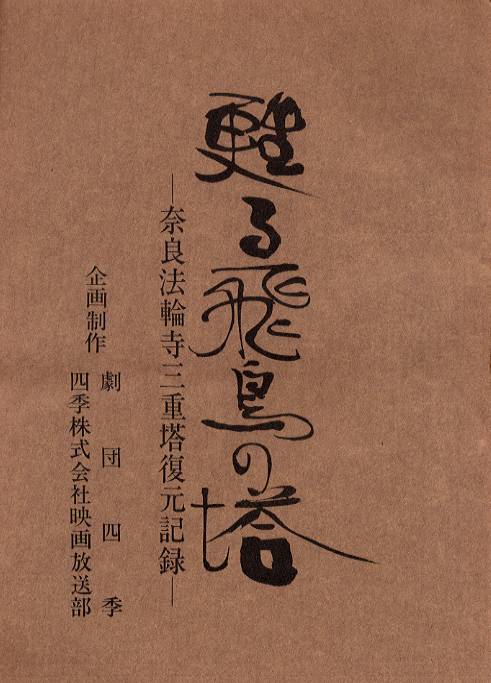 甦る飛鳥の塔
―奈良法輪寺三重塔復元記録―
企画制作
劇団四季
四季株式会社映画放送部